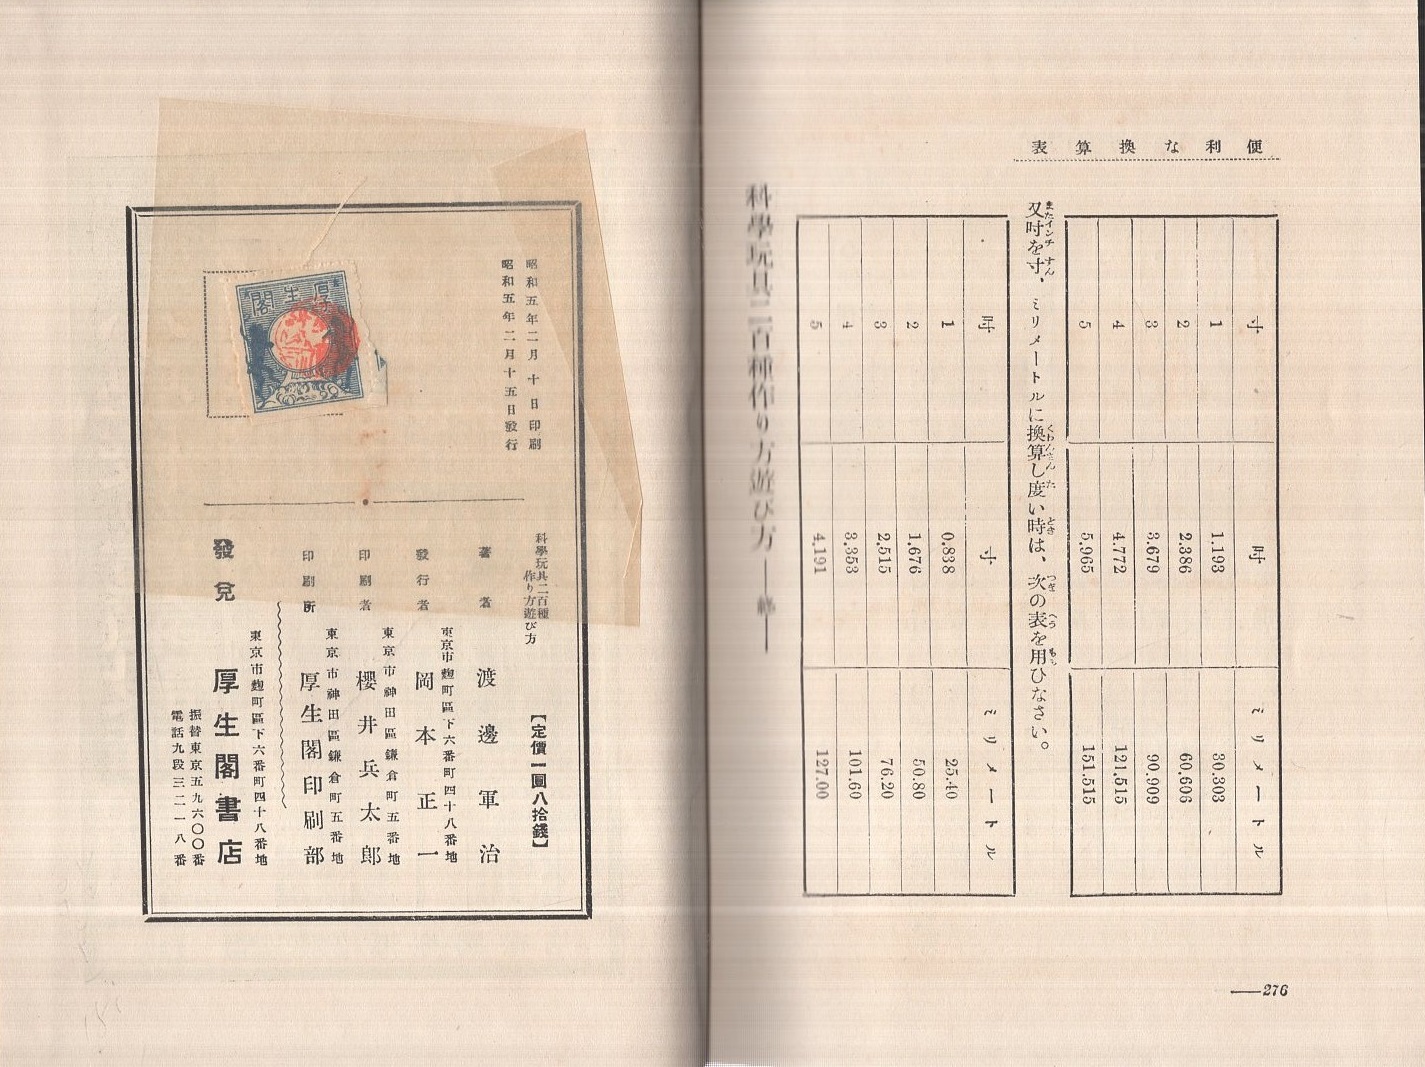 便利な換算表
寸 吋 ミリメートル
1 1.193 30.303
2 2.386 60.606
3 3.679 90.909
4 4.772 121.515
5 5.965 151.515
又吋を寸、ミリメートルに換算し度い時は、次の表を用ひなさい。
吋 寸 ミリメートル
1 0.838 25.40
2 1.676 50.80
3 2.515 76.20
4 3.353 101.60
5 4.191 127.00
科學玩具二百種作り方遊び方 ——終——
——276
昭和五年二月十日印刷
昭和五年二月十五日發行
厚生閣
科學玩具二百種
作り方遊び方
【定價一圓八拾錢】
著者 渡邊軍治
東京市麴町區下六番町四十八番地
發行者 岡本正一
東京市神田區鎌倉町五番地
印刷者 櫻井兵太郎
東京市神田區鎌倉町五番地
印刷所 厚生閣印刷部
東京市麴町區下六番町四十八番地
發兌 厚生閣書店
振替東京五九六〇〇番
電話九段三二一八番